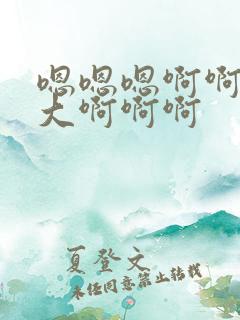 嗯嗯嗯啊啊
大啊啊啊
夏登文
未经同意禁止转载